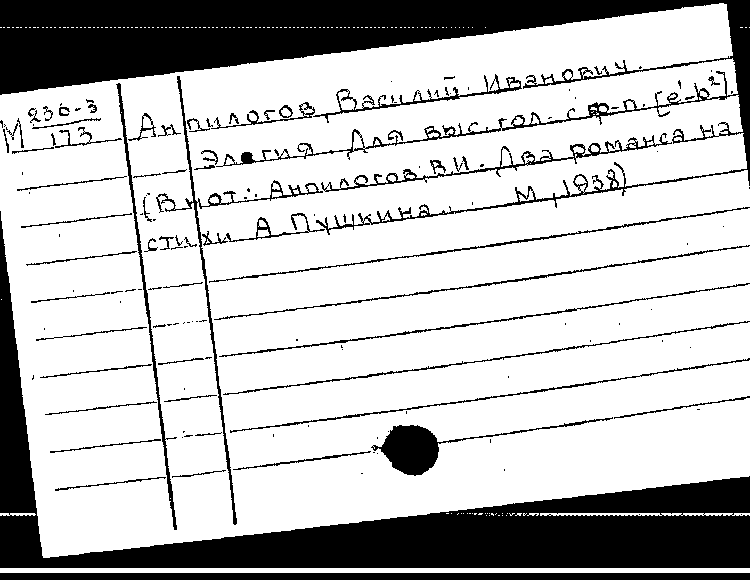 М 236-3
173
Анпилогов, Василий Иванович.
Элегия. Для выс. гол. с ф-п. [e'-b²].
(В нот.: Анпилогов, В.И. Два романса на
стихи А. Пушкина... М, 1938)